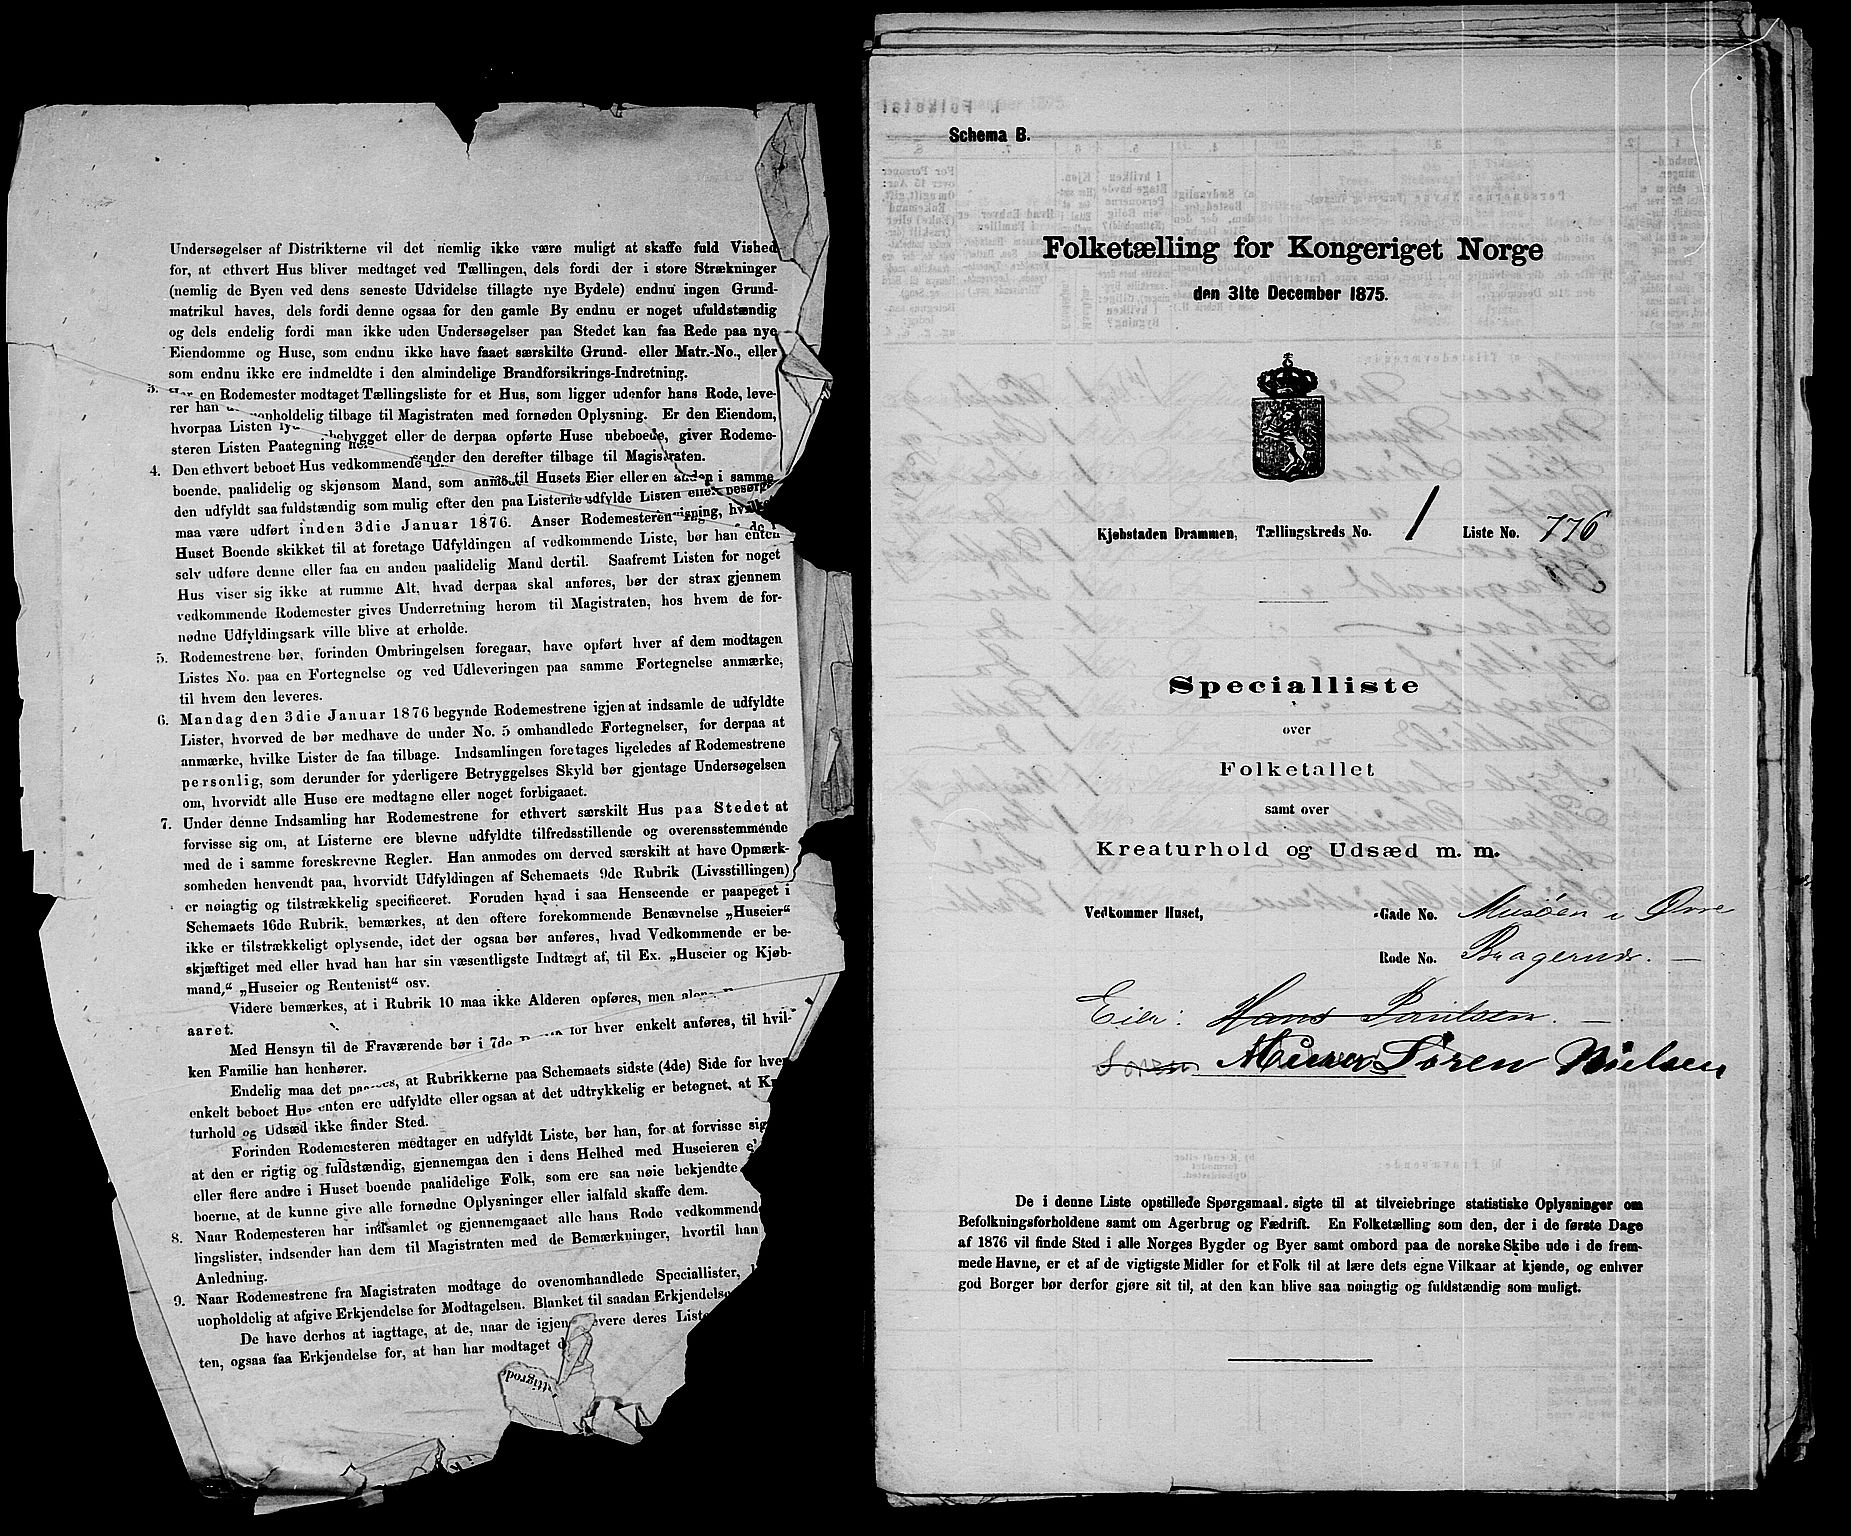 Undersøgelser af Distrikterne vil det nemlig ikke være muligt at skaffe fuld Vished
for, at ethvert Hus bliver medtaget ved Tællingen, dels fordi der i store Strækninger
(nemlig de Byen ved dens seneste Udvidelse tillagte nye Bydele) endnu ingen Grund-
matrikul haves, dels fordi denne ogsaa for den gamle By endnu er noget ufuldstændig
og dels endelig fordi man ikke uden Undersøgelser paa Stedet kan faa Rede paa nye
Eiendomme og Huse, som endnu ikke have faaet særskilte Grund- eller Matr.-No., eller
som endnu ikke ere indmeldte i den almindelige Brandforsikrings-Indretning.
3. en Rodemester modtaget Tællingsliste for et Hus, som ligger udenfor hans Rode, leve-
rer han uopholdelig tilbage til Magistraten med fornøden Oplysning. Er den Eiendom,
hvorpaa Listen bebygget eller de derpaa opførte Huse ubeboede, giver Rodeme-
steren Listen Paategning sender den derefter tilbage til Magistraten.
4. Den ethvert beboet Hus vedkommende til Husets Eier eller en anden i samme
boende, paalidelig og skjønsom Mand, som
den udfyldt saa fuldstændig som mulig efter den paa Listerne udfylde Listen eller besørge
maa være udført inden 3die Januar 1876. Anser Rodemesteren
Huset Boende skikket til at foretage Udfyldingen af vedkommende Liste, bør han enten
selv udføre denne eller faa en anden paalidelig Mand dertil. Saafremt Listen for noget
Hus viser sig ikke at rumme Alt, hvad derpaa skal anføres, bør der strax gjennem
vedkommende Rodemester gives Underretning herom til Magistraten, hos hvem de for-
nødne Udfyldingsark ville blive at erholde.
5. Rodemestrene bør, forinden Ombringelsen foregaar, have opført hver af dem modtagen
Listes No. paa en Fortegnelse og ved Udleveringen paa samme Fortegnelse anmærke,
til hvem den leveres.
6. Mandag den 3die Januar 1876 begynde Rodemestrene igjen at indsamle de udfyldte
Lister, hvorved de bør medhave de under No. 5 omhandlede Fortegnelser, for derpaa at
anmærke, hvilke Lister de faa tilbage. Indsamlingen foretages ligeledes af Rodemestrene
personlig, som derunder for yderligere Betryggelses Skyld bør gjentage Undersøgelsen
om, hvorvidt alle Huse ere medtagne eller noget forbigaaet.
7. Under denne Indsamling har Rodemestrene for ethvert særskilt Hus paa Stedet at
forvisse sig om, at Listerne ere blevne udfyldte tilfredsstillende og overensstemmende
med de i samme foreskrevne Regler. Han anmodes om derved særskilt at have Opmærk-
somheden henvendt paa, hvorvidt Udfyldingen af Schemaets 9de Rubrik (Livsstillingen)
er nøiagtig og tilstrækkelig specificeret. Foruden hvad i saa Henseende er paapeget i
Schemaets 16de Rubrik, bemærkes, at den oftere forekommende Benævnelse „Huseier“
ikke er tilstrækkeligt oplysende, idet der ogsaa bør anføres, hvad Vedkommende er be-
skjæftiget med eller hvad han har sin væsentligste Indtægt af, til Ex. „Huseier og Kjøb-
mand,“ „Huseier og Rentenist“ osv.
Videre bemærkes, at i Rubrik 10 maa ikke Alderen opføres, men
aaret.
Med Hensyn til de Fraværende bør i 7de for hver enkelt anføres, til hvil-
ken Familie han henhører.
Endelig maa det at Rubrikkerne paa Schemaets sidste (4de) Side for hver
enkelt beboet Hus enten ere udfyldte eller ogsaa at det udtrykkelig er betegnet, at
turhold og Udsæd ikke finder Sted.
Forinden Rodemesteren medtager en udfyldt Liste, bør han, for at forvisse sig
at den er rigtig og fuldstændig, gjennemgaa den i dens Helhed med Huseieren
eller flere andre i Huset boende paalidelige Folk, som ere saa nøie bekjendte
boerne, at de kunne give alle fornødne Oplysninger eller ialfald skaffe dem.
8. Naar Rodemesteren har indsamlet og gjennemgaaet alle hans Rode vedkommende
lingslister, indsender han dem til Magistraten med de Bemærkninger, hvortil han
Anledning.
9. Naar Rodemestrene fra Magistraten modtage de ovenomhandlede Speciallister,
uopholdelig at afgive Erkjendelse for Modtagelsen. Blanket til saadan Erkjendelse
De have derhos at iagttage, at de, naar de igjen levere deres
ten, ogsaa faa Erkjendelse for, at han har modtaget
Schema B.
Folketælling for Kongeriget Norge
den 31te December 1875.
Kjøbstaden Drammen, Tællingskreds No. 1 Liste No. 776
Specialliste
over
Folketallet
samt over
Kreaturhold og Udsæd m. m.
Vedkommer Huset, -Gade No. Musøen i Øvre
Rode No. Bragernæs.
Eier: Hans Paulsen.
Søren Nielsen
De i denne Liste opstillede Spørgsmaal sigte til at tilveiebringe statistiske Oplysninger om
Befolkningsforholdene samt om Agerbrug og Fædrift. En Folketælling som den, der i de første Dage
af 1876 vil finde Sted i alle Norges Bygder og Byer samt ombord paa de norske Skibe ude i de frem-
mede Havne, er et af de vigtigste Midler for et Folk til at lære dets egne Vilkaar at kjende, og enhver
god Borger bør derfor gjøre sit til, at den kan blive saa nøiagtig og fuldstændig som muligt.